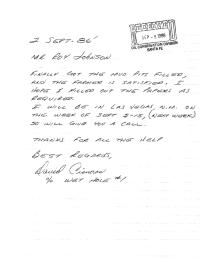 RECEIVED
SEP - 9 1986
OIL CONSERVATION DIVISION
SANTA FE
2 SEPT-86'
MR ROY JOHNSON
FINALLY GOT THE MUD PITS FILLED,
AND THE FARMER IS SATISFIED. I
HOPE I FILLED OUT THE PAPERS AS
REQUIRED.
I WILL BE IN LAS VEGAS, N.M. ON
THE WEEK OF SEPT 8-15, (NEXT WEEK)
SO WILL GIVE YOU A CALL.
THANKS FOR ALL THE HELP
BEST REGARDS,
David
% WET HOLE #1